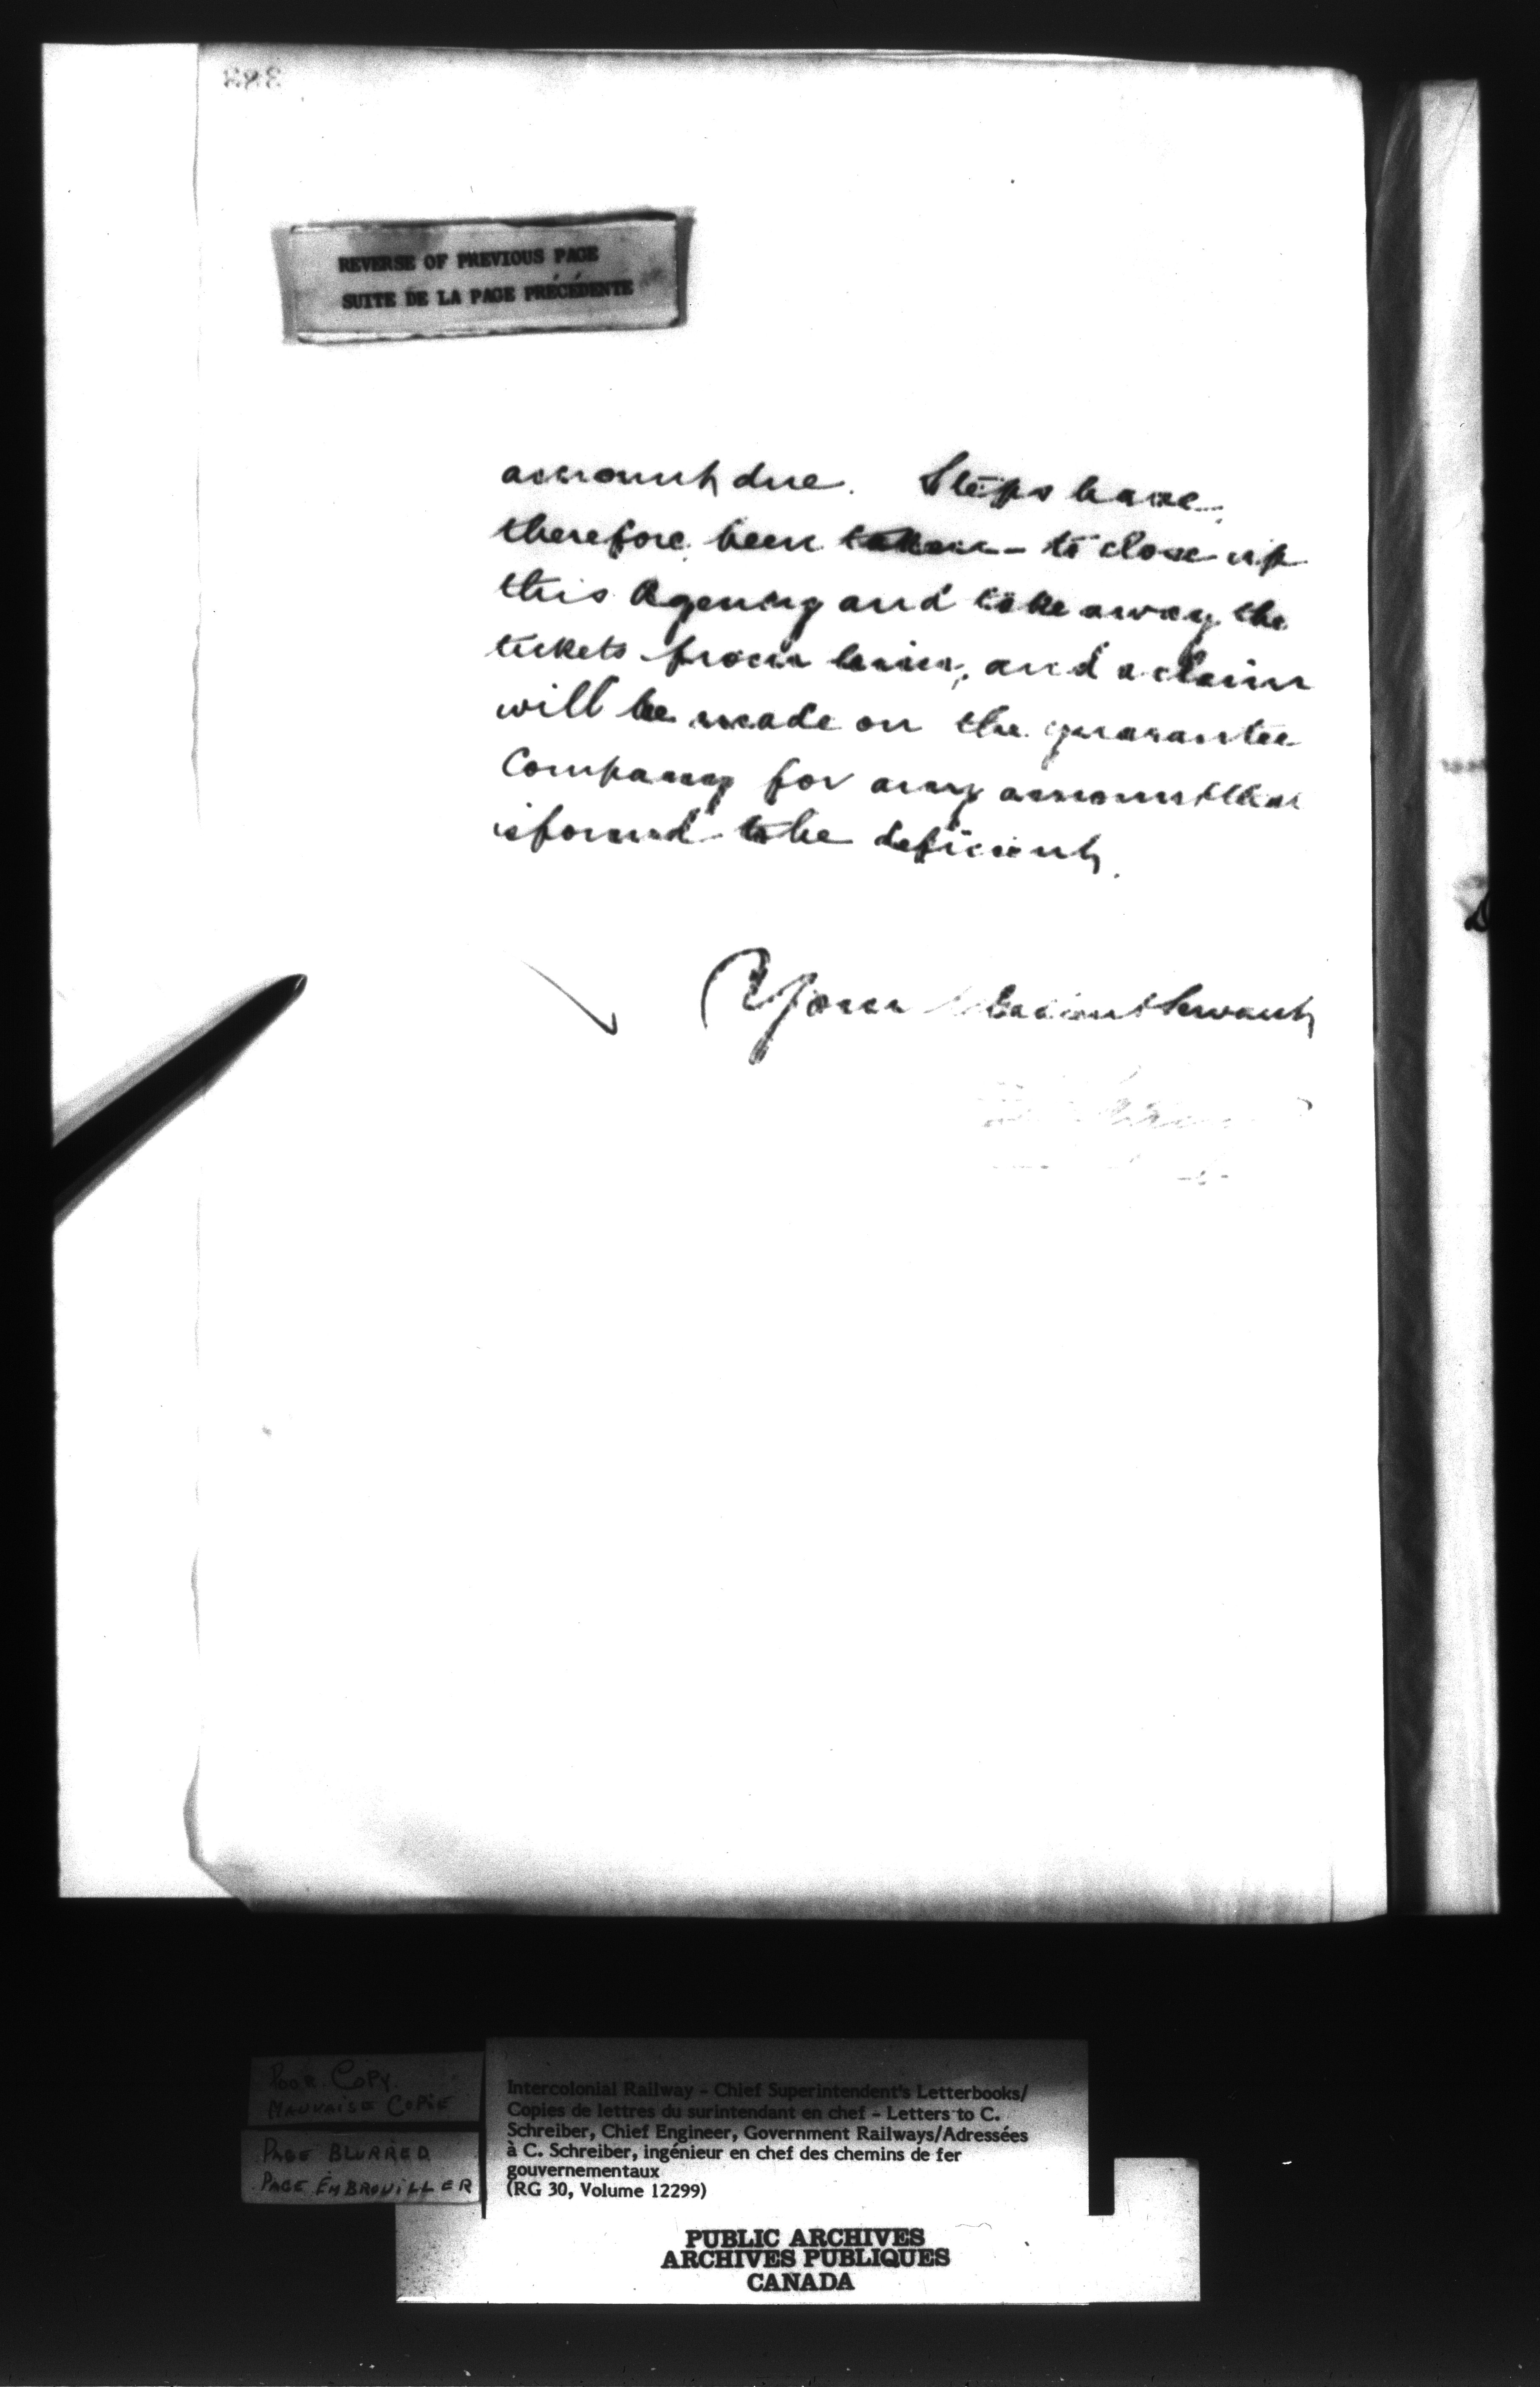 383
REVERSE OF PREVIOUS PAGE
SUITE DE LA PAGE PRÉCÉDENTE
amount due. Steps have
therefore been taken to close up
this Agency and take away the
tickets from him, and a claim
will be made on the guarantee
Company for any amount that
is found to be deficient.
Your Obedient Servant
POOR COPY
MAUVAISE COPIE
PAGE BLURRED
PAGE EMBROUILLER
Intercolonial Railway - Chief Superintendent's Letterbooks/
Copies de lettres du surintendant en chef - Letters to C.
Schreiber, Chief Engineer, Government Railways/Adressées
à C. Schreiber, ingénieur en chef des chemins de fer
gouvernementaux
(RG 30, Volume 12299)
PUBLIC ARCHIVES
ARCHIVES PUBLIQUES
CANADA